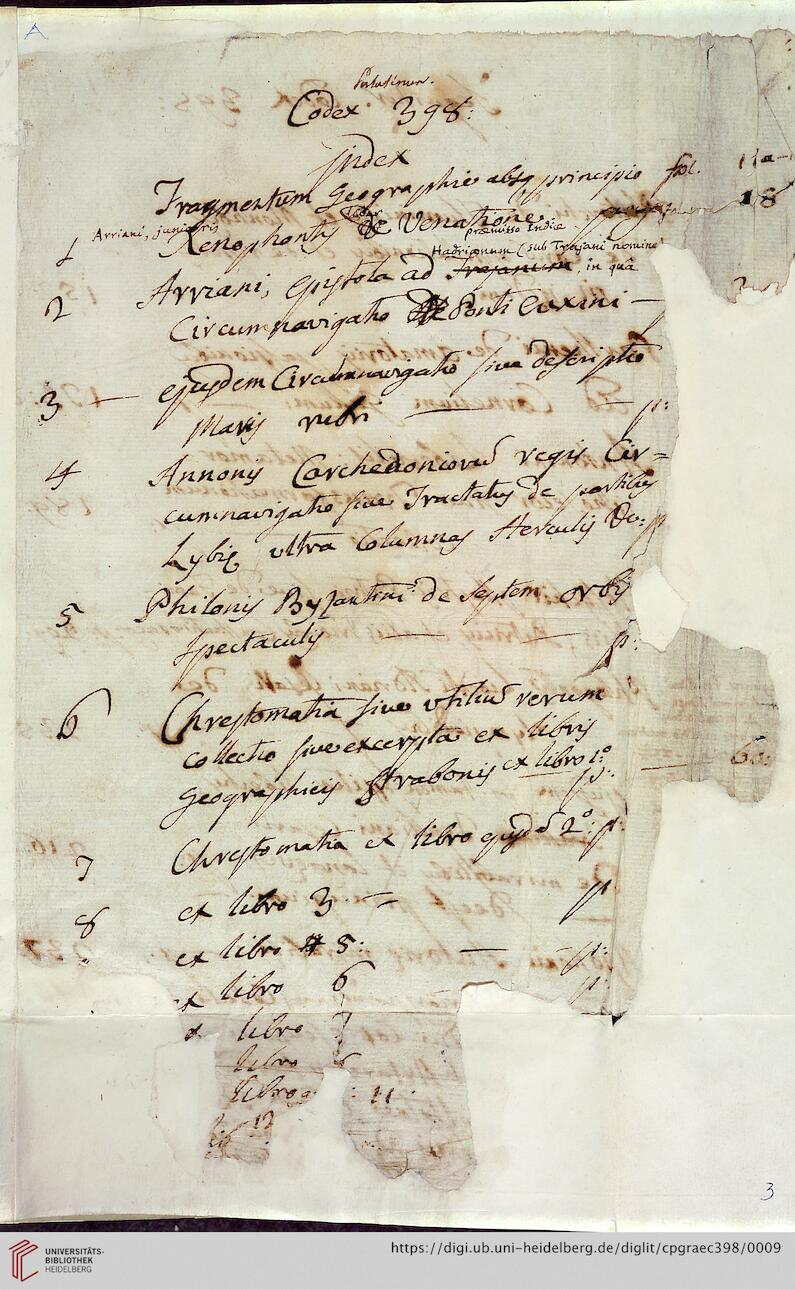 A
Palatinus.
Codex 398:
Index
Fragmentum Geographie absq principio fol. 11a-
Arriani, junioris
1 Xenophontis de Venatione 18
præmisso Indie
Hadrianum (sub Trajani nomine)
2 Arriani, epistola ad Trajanum, in quâ
Circumnavigatio Ponti Euxini —
3 — ejusdem Circumnavigatio sive descriptio
Maris rubri — — p:
4 Annonis Carchedoniorū regis Cir=
cumnavigatio sive Tractatus de partibus
Lybię ultra Columnas Herculis p
5 Philonis Byzantini de septem orbis
spectaculis — — p:
6 Chrestomatia sive utiliū rerum
collectio sive excerpta ex libris
Geographicis Strabonis ex libro 1º: p: — 60:
7 Chrestomatia ex libro ejusdē 2º: p:
8 ex libro 3. — p
ex libro 5: — — p:
ex libro 6 p:
libro 7
libro
libro 11
12
3
UNIVERSITÄTS-
BIBLIOTHEK
HEIDELBERG
https://digi.ub.uni-heidelberg.de/diglit/cpgraec398/0009